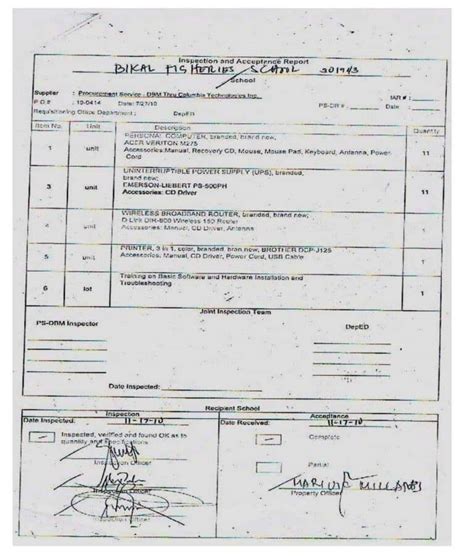 Inspection and Acceptance Report
BIKAL FISHERIES SCHOOL
School
Supplier : Procurement Service - DBM Thru Columbia Technologies Inc. IAR # :
P.O.# : 10-0414 Date: 7/27/10 PS-DR # : Date :
Requisitioning Office Department : DepED
Item No. Unit Description Quantity
1 unit PERSONAL COMPUTER, branded, brand new,
ACER VERITON M275
Accessories:Manual, Recovery CD, Mouse, Mouse Pad, Keyboard, Antenna, Power
Cord 11
3 unit UNINTERRUPTIBLE POWER SUPPLY (UPS), branded,
brand new;
EMERSON-LIEBERT PS-500PH
Accessories: CD Driver 11
4 unit WIRELESS BROADBAND ROUTER, branded, brand new;
D Link DIR-600 Wireless 150 Router
Accessories: Manual, CD Driver, Antenna 1
5 unit PRINTER, 3 in 1, color, branded, bran new, BROTHER DCP-J125
Accessories, Manual, CD Driver, Power Cord, USB Cable 1
6 lot Training on Basic Software and Hardware Installation and
Troubleshooting 1
Joint Inspection Team
PS-DBM Inspector DepED
Date Inspected:
Recipient School
Inspection Acceptance
Date Inspected: 11-17-10 Date Received: 11-17-10
Inspected, verified and found OK as to
quantity and specifications
Complete
Inspection Officer
Partial
Inspection Officer
Property Officer
Inspection Officer